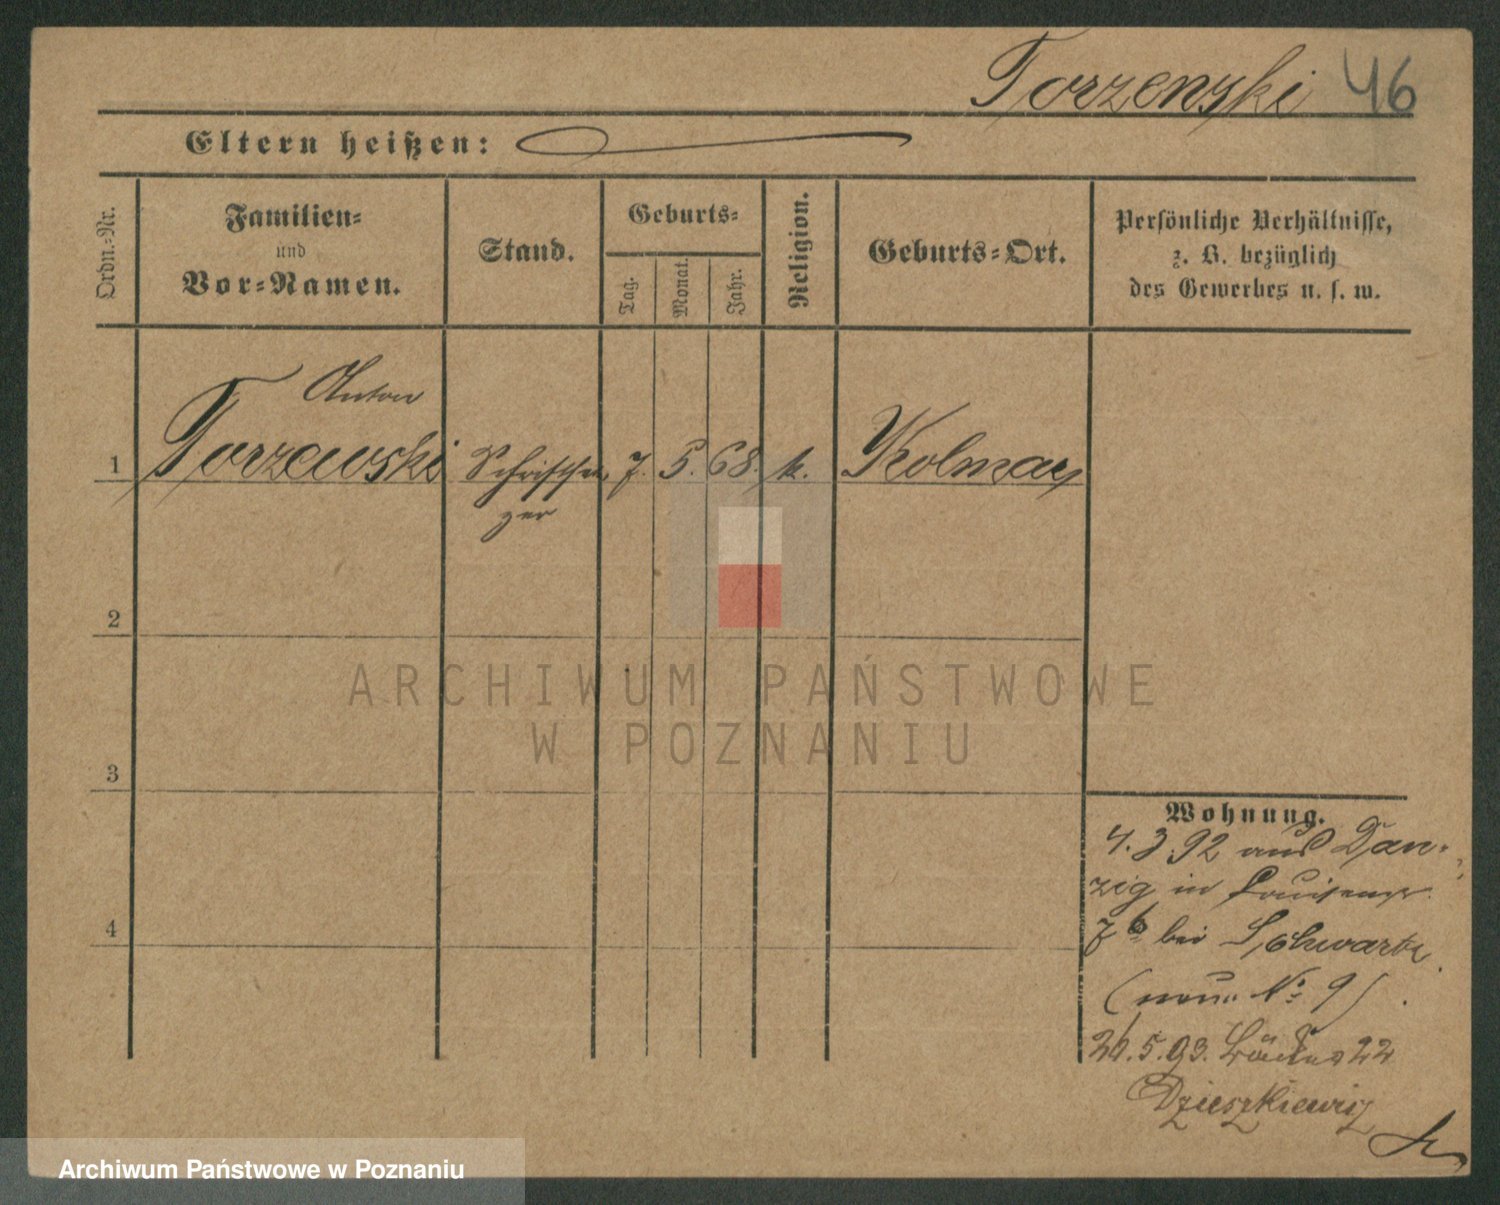 Torzenski 46
Eltern heißen:
Ordn.-Nr.
Familien-
und
Vor-Namen.
Stand.
Geburts-
Tag.
Monat.
Jahr.
Religion.
Geburts-Ort.
Persönliche Verhältnisse,
z. B. bezüglich
des Gewerbes u. s. w.
Anton
1 Torzewski Schriftset 7. 5. 68. k. Kolmar
zer
2
3
4
ARCHIWUM PAŃSTWOWE
W POZNANIU
Wohnung.
4.3.92 aus Dan-
zig in Louisenstr.
7b bei Schwartz
(neue No 9).
26.5.93. Bäcker 22
Dzieszkiewicz
Archiwum Państwowe w Poznaniu